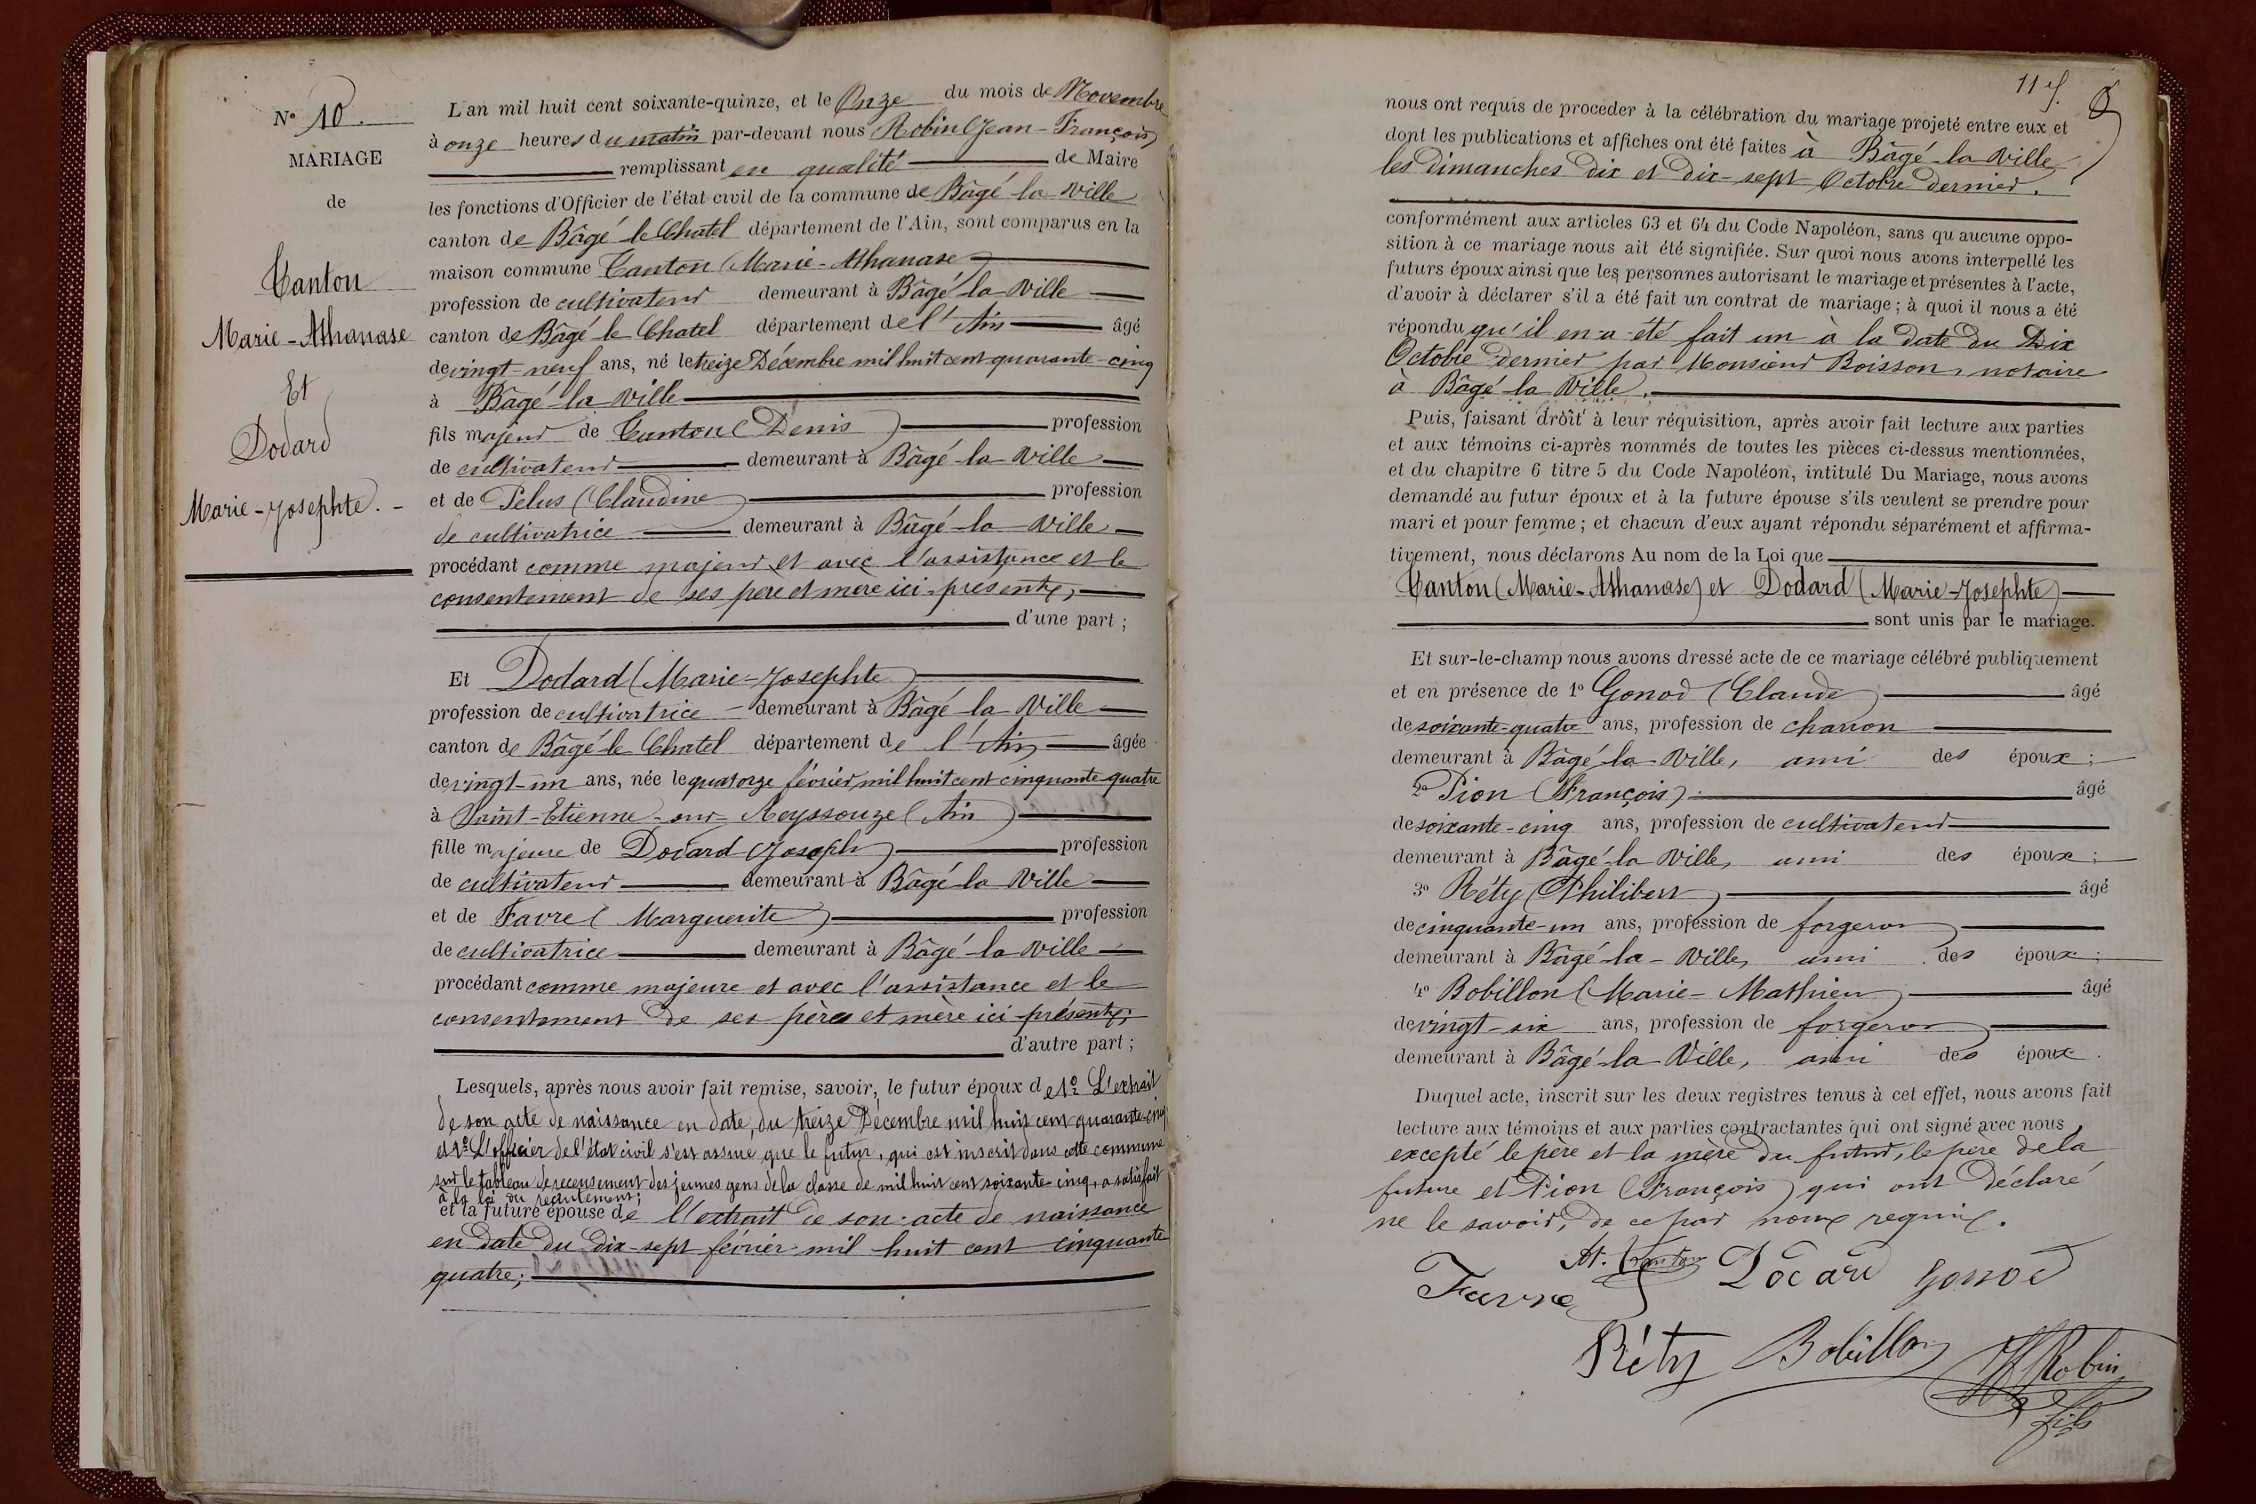 N° 10.
MARIAGE
de
Canton
Marie-Athanase
Et
Dodard
Marie-Josephte.
L'an mil huit cent soixante-quinze, et le Onze du mois de Novembre
à onze heures du matin par-devant nous Robin (Jean-François)
remplissant en qualité de Maire
les fonctions d'Officier de l'état civil de la commune de Bâgé la Ville
canton de Bâgé le Chatel département de l'Ain, sont comparus en la
maison commune Canton (Marie-Athanase)
profession de cultivateur demeurant à Bâgé la Ville
canton de Bâgé le Chatel département de l'Ain âgé
de vingt-neuf ans, né le treize Décembre mil huit cent quarante-cinq
à Bâgé la Ville
fils majeur de Canton (Denis) profession
de cultivateur demeurant à Bâgé la Ville
et de Pelus (Claudine) profession
de cultivatrice demeurant à Bâgé la Ville
procédant comme majeur et avec l'assistance et le
consentement de ses père et mère ici présents,
d'une part ;
Et Dodard (Marie-Josephte)
profession de cultivatrice demeurant à Bâgé la Ville
canton de Bâgé le Chatel département de l'Ain âgée
de vingt-un ans, née le quatorze février mil huit cent cinquante quatre
à Saint-Etienne-sur-Reyssouze (Ain)
fille majeure de Dodard (Joseph) profession
de cultivateur demeurant à Bâgé la Ville
et de Favre (Marguerite) profession
de cultivatrice demeurant à Bâgé la Ville
procédant comme majeure et avec l'assistance et le
consentement de ses père et mère ici présents;
d'autre part ;
Lesquels, après nous avoir fait remise, savoir, le futur époux de 1° L'extrait
de son acte de naissance en date, du treize Décembre mil huit cent quarante-cinq
et 2° L'officier de l'état civil s'est assuré que le futur, qui est inscrit dans cette commune
sur le tableau de recensement des jeunes gens de la classe de mil huit cent soixante-cinq, a satisfait
à la loi du recrutement;
et la future épouse de l'extrait de son acte de naissance
en date du dix-sept février mil huit cent cinquante
quatre;
115
nous ont requis de procéder à la célébration du mariage projeté entre eux et
dont les publications et affiches ont été faites à Bâgé la Ville
les dimanches dix et dix-sept Octobre dernier.
conformément aux articles 63 et 64 du Code Napoléon, sans qu'aucune oppo-
sition à ce mariage nous ait été signifiée. Sur quoi nous avons interpellé les
futurs époux ainsi que les personnes autorisant le mariage et présentes à l'acte,
d'avoir à déclarer s'il a été fait un contrat de mariage ; à quoi il nous a été
répondu qu'il en a été fait un à la date du Dix
Octobre dernier par Monsieur Boisson, notaire
à Bâgé la Ville.
Puis, faisant droit à leur réquisition, après avoir fait lecture aux parties
et aux témoins ci-après nommés de toutes les pièces ci-dessus mentionnées,
et du chapitre 6 titre 5 du Code Napoléon, intitulé Du Mariage, nous avons
demandé au futur époux et à la future épouse s'ils veulent se prendre pour
mari et pour femme ; et chacun d'eux ayant répondu séparément et affirma-
tivement, nous déclarons Au nom de la Loi que
Canton (Marie-Athanase) et Dodard (Marie-Josephte)
sont unis par le mariage.
Et sur-le-champ nous avons dressé acte de ce mariage célébré publiquement
et en présence de 1° Gonod (Claude) âgé
de soixante-quatre ans, profession de charron
demeurant à Bâgé la Ville, ami des époux ;
2° Pion (François) âgé
de soixante-cinq ans, profession de cultivateur
demeurant à Bâgé la Ville, ami des époux ;
3° Réty (Philibert) âgé
de cinquante-un ans, profession de forgeron
demeurant à Bâgé-la-Ville, ami des époux ;
4° Bobillon (Marie-Mathieu) âgé
de vingt-six ans, profession de forgeron
demeurant à Bâgé-la-Ville, ami des époux.
Duquel acte, inscrit sur les deux registres tenus à cet effet, nous avons fait
lecture aux témoins et aux parties contractantes qui ont signé avec nous
excepté le père et la mère du futur, le père de la
future et Pion (François) qui ont déclaré
ne le savoir, de ce par nous requis.
At. Canton Dodard Gonod
Favre
Réty Bobillon Robin
fils